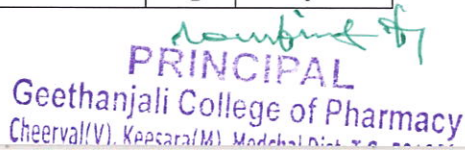 PRINCIPAL
Geethanjali College of Pharmacy
Cheerval(V), Keesara(M), Medchal Dist. T.S.